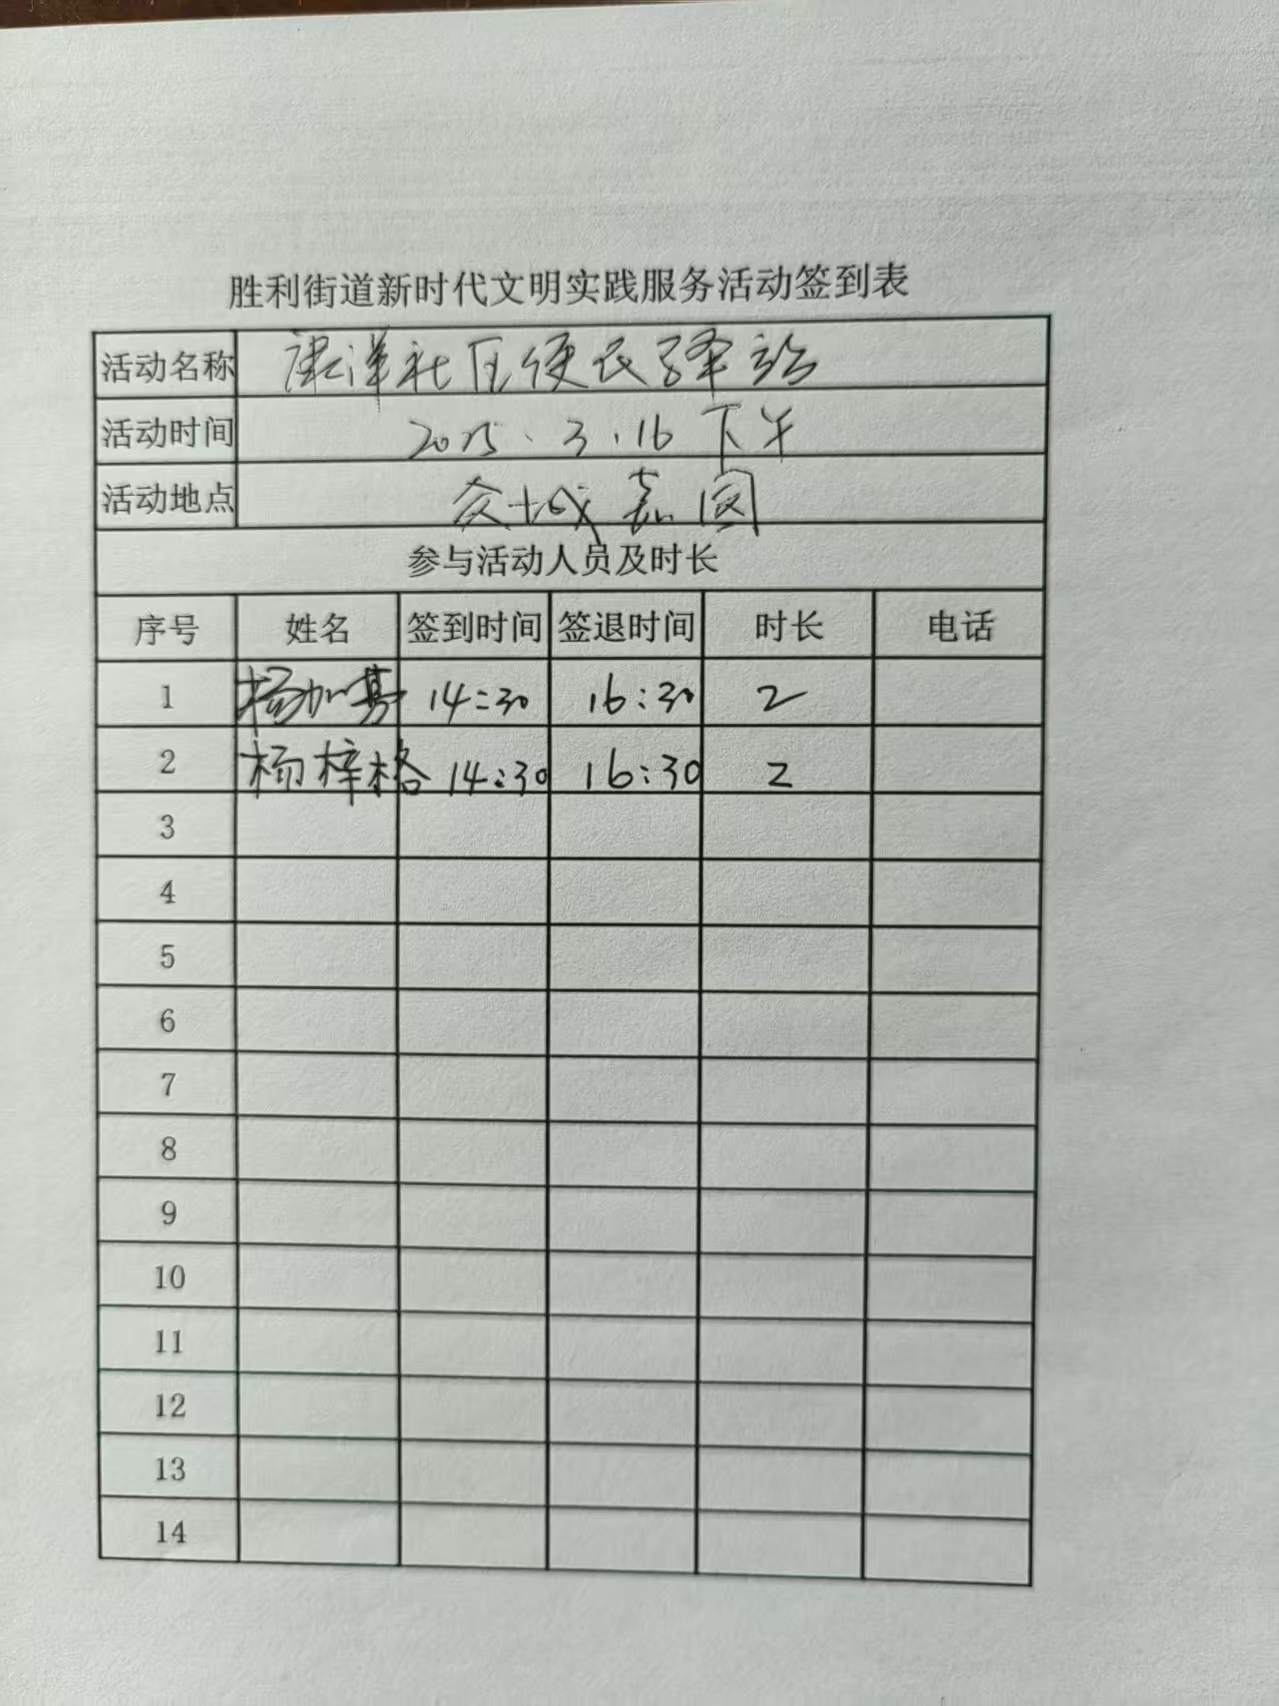 胜利街道新时代文明实践服务活动签到表
活动名称 康洋社区便民驿站
活动时间 2025.3.16 下午
活动地点 众城嘉园
参与活动人员及时长
序号 姓名 签到时间 签退时间 时长 电话
1 杨加 14:30 16:30 2
2 杨梓格 14:30 16:30 2
3
4
5
6
7
8
9
10
11
12
13
14